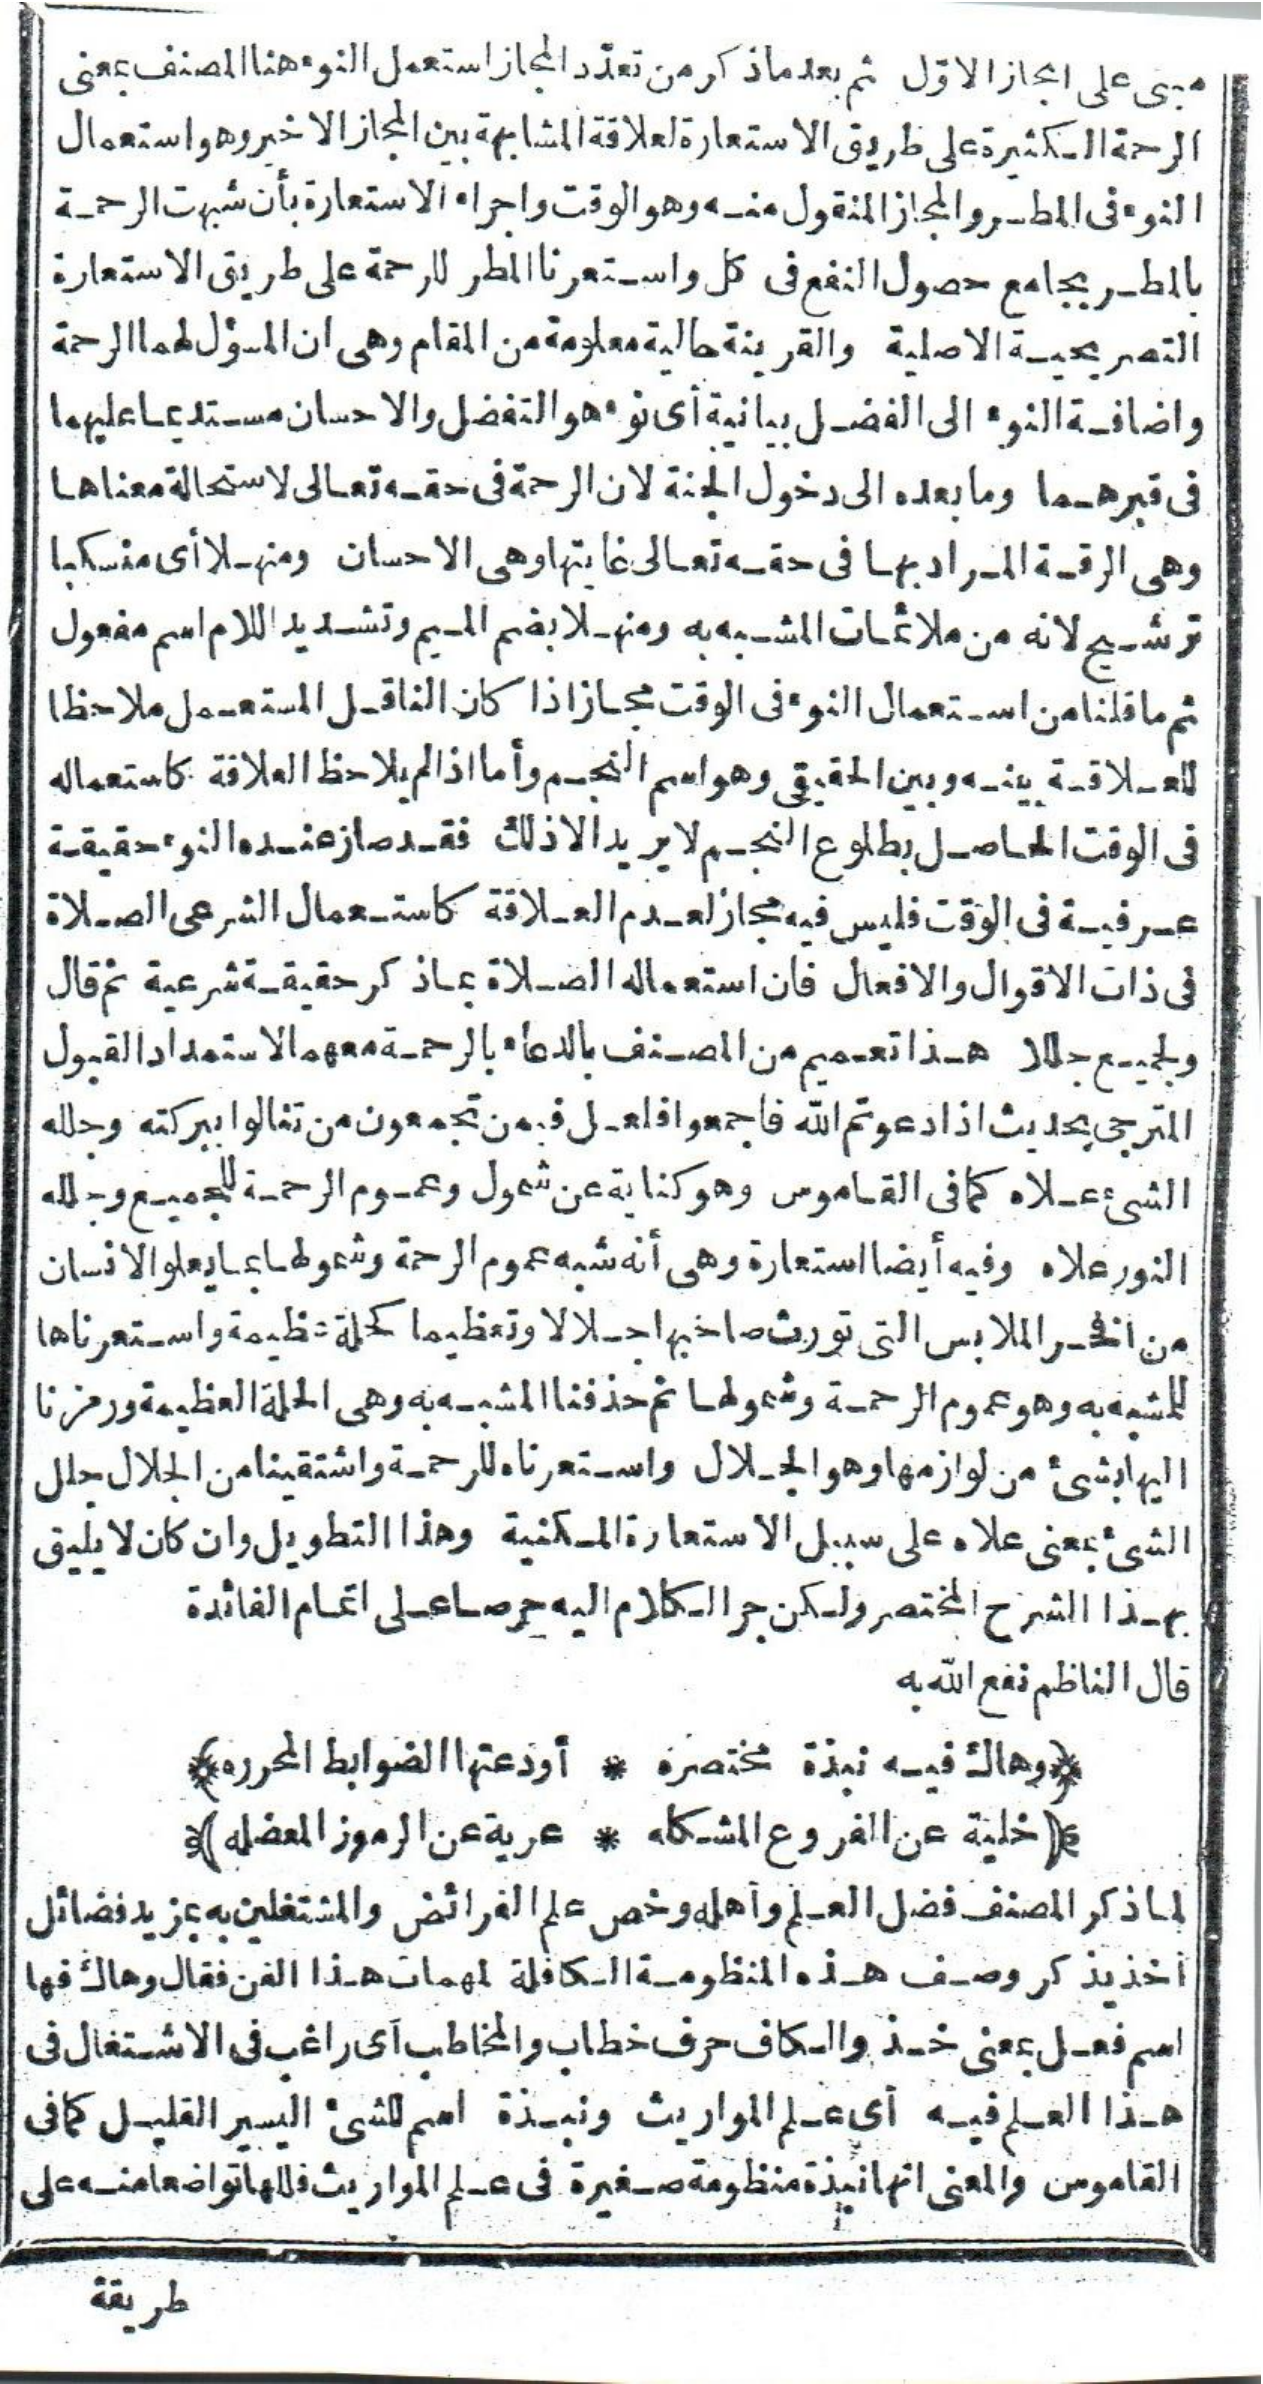 مبنى على المجاز الاول ثم بعد ماذكر من تعدّد المجاز استعمل النوء هنا المصنف بمعنى
الرحمة الكثيرة على طريق الاستعارة لعلاقة المشابهة بين المجاز الاخير وهو استعمال
النوء فى المطر والمجاز المنقول منه وهو الوقت واجراء الاستعارة بأن شبهت الرحمة
بالمطر بجامع حصول النفع فى كل واستعرنا المطر للرحمة على طريق الاستعارة
التصريحية الاصلية والقرينة حالية معلومة من المقام وهى ان المسؤل لهما الرحمة
واضافة النوء الى الفضل بيانية أى نوء هو التفضل والاحسان مستدعا عليهما
فى قبرهما وما بعده الى دخول الجنة لان الرحمة فى حقه تعالى لاستحالة معناها
وهى الرقة المراد بها فى حقه تعالى غايتها وهى الاحسان ومنهلا أى منسكبا
ترشيح لانه من ملائمات المشبه به ومنهلا بضم الميم وتشديد اللام اسم مفعول
ثم ما قلنا من استعمال النوء فى الوقت مجازا اذا كان الناقل المستعمل ملاحظا
للعلاقة بينه وبين الحقيقى وهو اسم النجم وأما اذا لم يلاحظ العلاقة كاستعماله
فى الوقت الحاصل بطلوع النجم لا يريد الا ذلك فقد صار عنده النوء حقيقة
عرفية فى الوقت فليس فيه مجاز لعدم العلاقة كاستعمال الشرعى الصلاة
فى ذات الاقوال والافعال فان استعماله الصلاة بماذكر حقيقة شرعية ثم قال
ولجميع جللا هذا تعميم من المصنف بالدعاء بالرحمة معهما لاستمداد القبول
المترجى بحديث اذا دعوتم الله فاجمعوا فلعل فيمن تجمعون من تنالوا ببركته وجلله
الشئ علاه كما فى القاموس وهو كناية عن شمول وعموم الرحمة للجميع وجلله
النور علاه وفيه أيضا استعارة وهى أنه شبه عموم الرحمة وشمولها بما يعلو الانسان
من أفخر الملابس التى تورث صاحبها جلالا وتعظيما كحلة عظيمة واستعرناها
للمشبه به وهو عموم الرحمة وشمولها ثم حذفنا المشبه به وهى الحلة العظيمة ورمزنا
اليها بشئ من لوازمها وهو الجلال واستعرناه للرحمة واشتقينا من الجلال جلل
الشئ بمعنى علاه على سبيل الاستعارة المكنية وهذا التطويل وان كان لا يليق
بهذا الشرح المختصر ولكن جر الكلام اليه حرصا على اتمام الفائدة
قال الناظم نفع الله به
﴿وهاك فيه نبذة مختصره * أودعتها الضوابط المحرره﴾
﴿خلية عن الفروع المشكله * عرية عن الرموز المعضله﴾
لما ذكر المصنف فضل العلم وأهله وخص علم الفرائض والمشتغلين به بمزيد فضائل
أخذ يذكر وصف هذه المنظومة الكافلة لمهمات هذا الفن فقال وهاك فها
اسم فعل بمعنى خذ والكاف حرف خطاب والمخاطب أى راغب فى الاشتغال فى
هذا العلم فيه أى علم المواريث ونبذة اسم للشئ اليسير القليل كما فى
القاموس والمعنى انها نبذة منظومة صغيرة فى علم المواريث قللها تواضعا منه على
طريقة